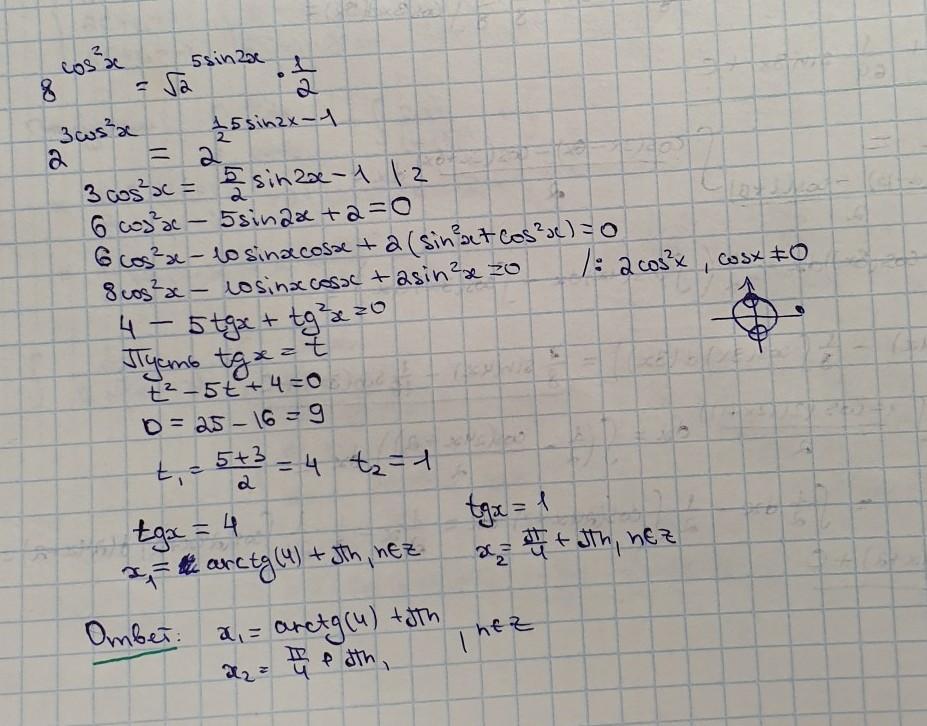 8^{cos²x} = √2^{5sin2x} · 1/2
2^{3cos²x} = 2^{1/2 5sin2x-1}
3cos²x = 5/2 sin2x - 1 | · 2
6cos²x - 5sin2x + 2 = 0
6cos²x - 10sinxcosx + 2(sin²x + cos²x) = 0
8cos²x - 10sinxcosx + 2sin²x = 0 /: 2cos²x, cosx ≠ 0
4 - 5tgx + tg²x = 0
Пусть tgx = t
t² - 5t + 4 = 0
D = 25 - 16 = 9
t₁ = (5+3)/2 = 4 t₂ = 1
tgx = 4 tgx = 1
x₁ = arctg(4) + πn, n∈z x₂ = π/4 + πn, n∈z
Ответ: x₁ = arctg(4) + πn
x₂ = π/4 + πn, , n∈z